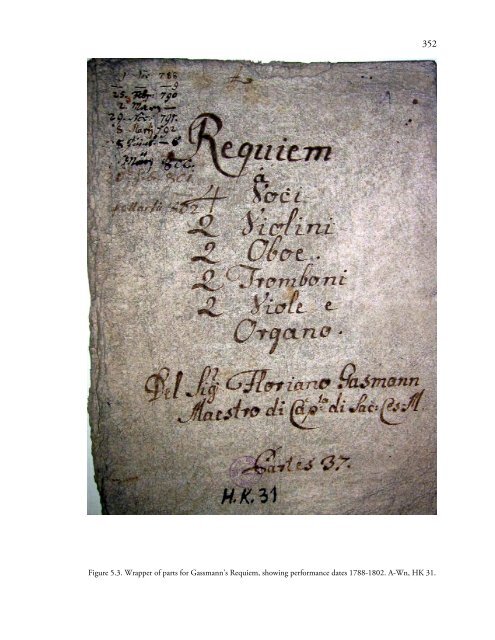 352
786
25. 790
2
29. 791.
792
Requiem
á
4 Voci
2 Violini
2 Oboe.
2 Tromboni
2 Viole e
Organo.
Del Sigr Floriano Gasmann
Maestro di Capla di Sac: Ces M.
Partes 37.
H.K. 31
Figure 5.3. Wrapper of parts for Gassmann's Requiem, showing performance dates 1788-1802. A-Wn, HK 31.